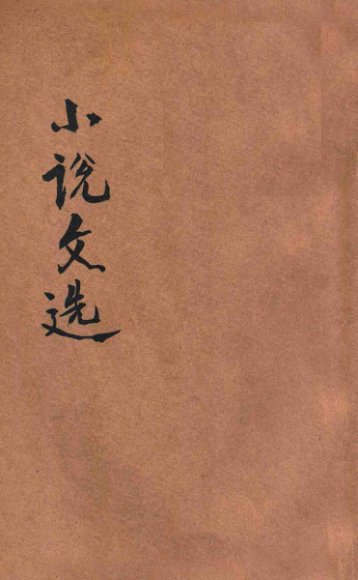 小说文选